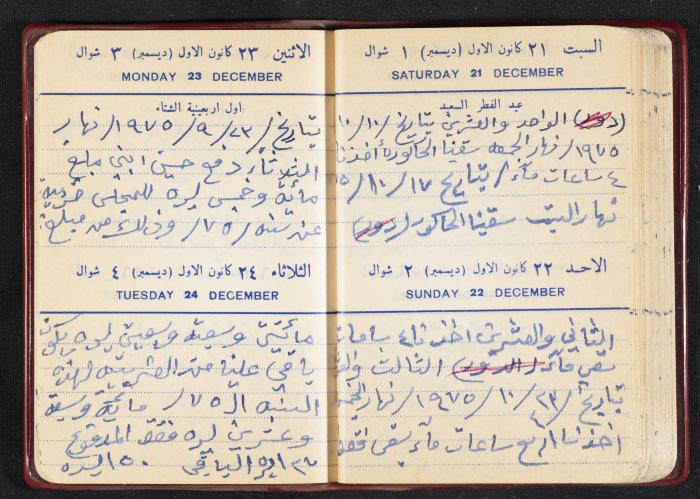 السبت ٢١ كانون الاول (ديسمبر) ١ شوال
SATURDAY 21 DECEMBER
عيد الفطر السعيد
(دور) الواحد والعشرين بتاريخ /١٠/١٠
١٩٧٥/ نهار الجمعه سقينا الحاكوره أخذنا
٤ ساعات مآء / بتاريخ ١٧/١٠/
نهار السبت سقينا الحاكوره (دور)
الاحد ٢٢ كانون الاول (ديسمبر) ٢ شوال
SUNDAY 22 DECEMBER
الثاني والعشرين اخذنا ٤ ساعات
بقي مآء (الدور) الثالث
بتاريخ /٢٣/١٠/١٩٧٥/ نهار
اخذنا اربع ساعات مآء بقي فقط
الاثنين ٢٣ كانون الاول (ديسمبر) ٣ شوال
MONDAY 23 DECEMBER
اول اربعينية الشتاء
بتاريخ /٢٣/٩/١٩٧٥/ نهار
الثلاثاء دفع حسين ابني مبلغ
مائة وخمسين ليره للمجلس
عن سنة /٧٥/ وذلك من مبلغ
الثلاثاء ٢٤ كانون الاول (ديسمبر) ٤ شوال
TUESDAY 24 DECEMBER
مائتين وسبعة وسبعين ليره يكون
باقي علينا من الضريبه لهذه
السنه ال ٧٥/ مائة وسبعة
وعشرين ليره فقط المدفوع
الباقي ١٥٠ ليره